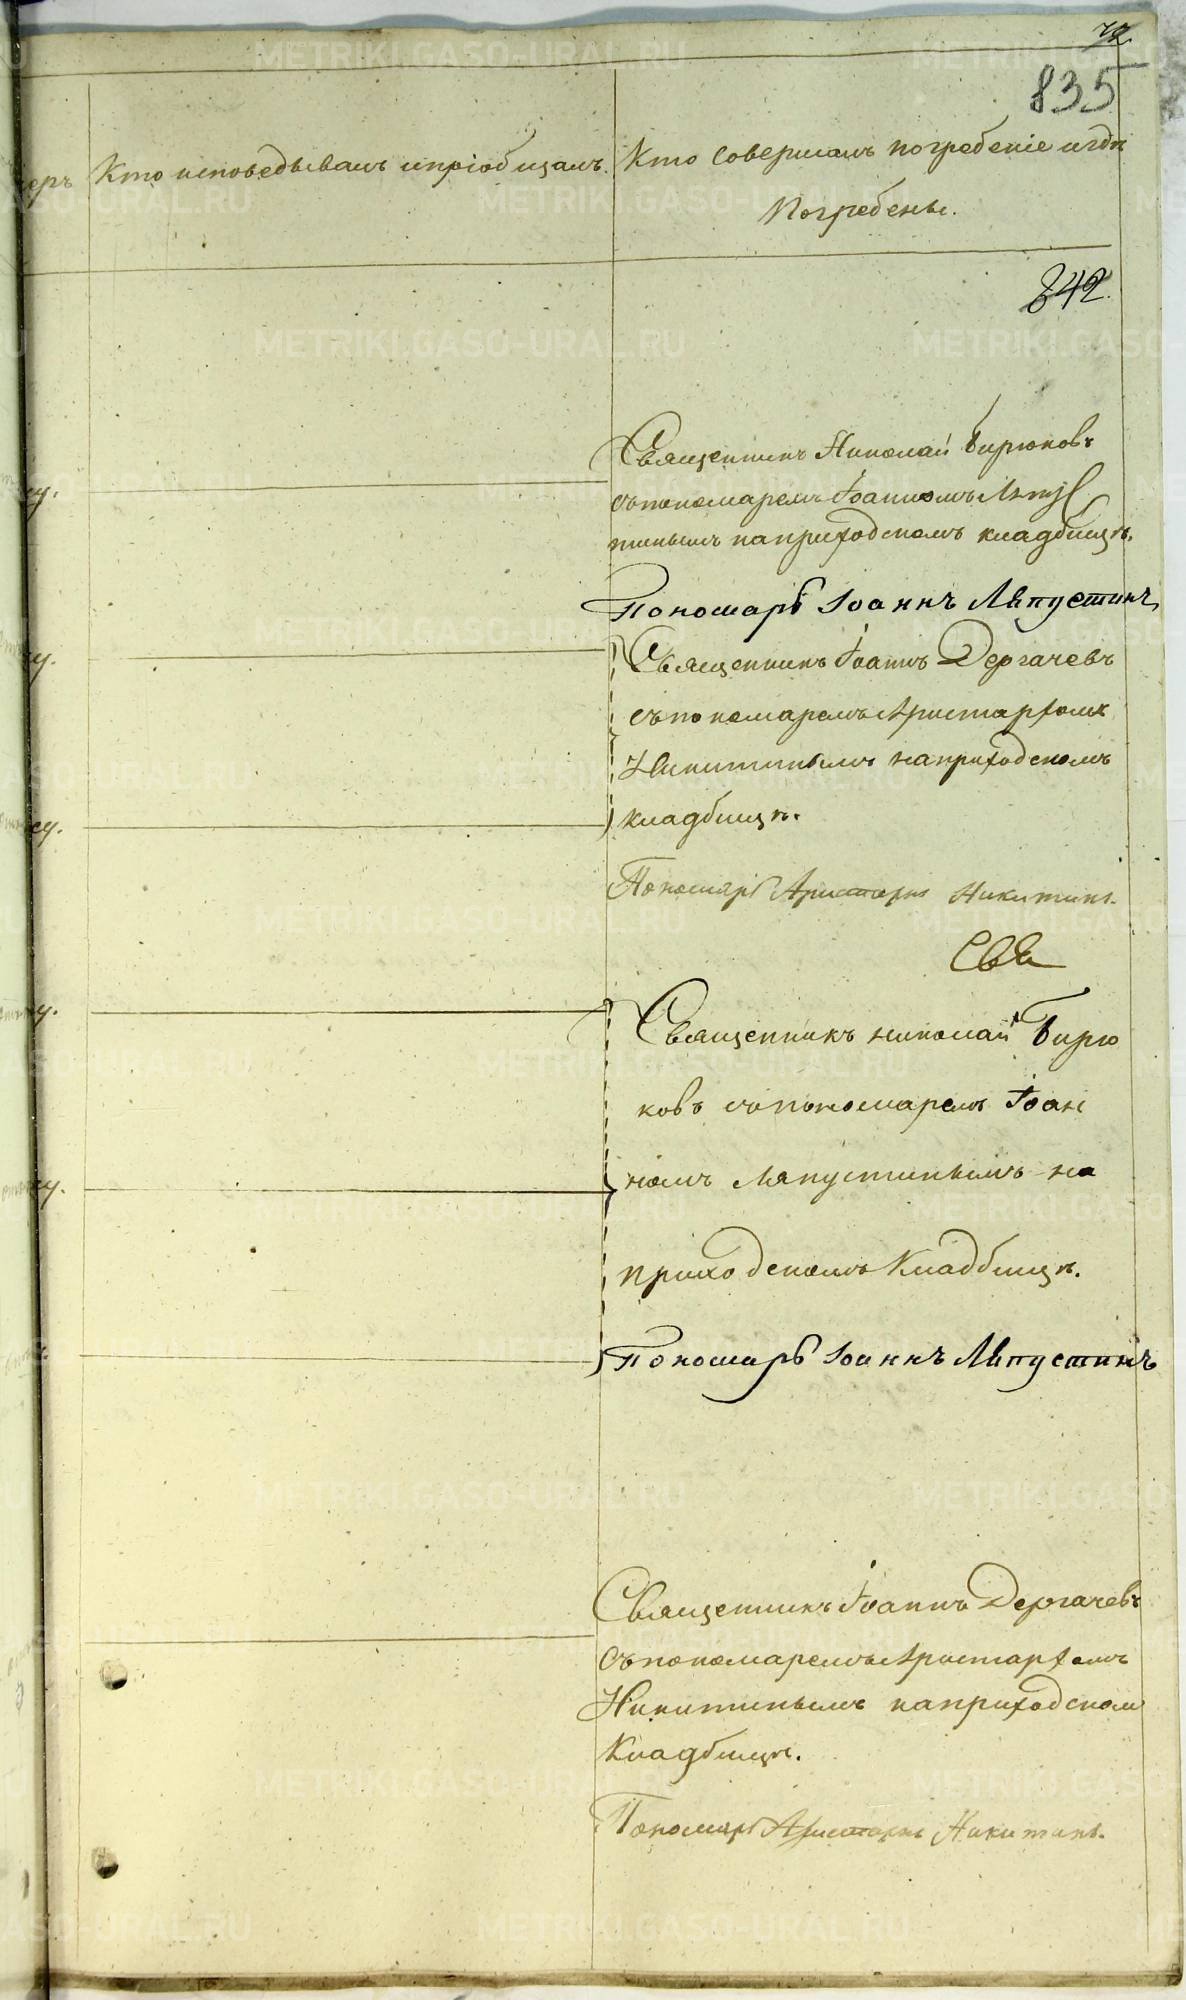 72
835
Кто исповѣдывалъ и пріобщалъ.
Кто совершалъ погребеніе и гдѣ
погребены.
842.
Священникъ Николай Бирюковъ
съ пономаремъ Іоанномъ Ляпус
тинымъ на приходскомъ кладбищѣ.
Пономарь Іоаннъ Ляпустинъ
Священникъ Іоаннъ Дергачевъ
съ пономаремъ Аристархомъ
Никитинымъ на приходскомъ
кладбищѣ.
Пономарь Аристархъ Никитинъ.
Свя
Священникъ Николай Бирю
ковъ съ пономаремъ Іоан
номъ Ляпустинымъ на
приходскомъ кладбищѣ.
Пономарь Іоаннъ Ляпустинъ
Священникъ Іоаннъ Дергачевъ
съ пономаремъ Аристархомъ
Никитинымъ на приходском
кладбищѣ.
Пономарь Аристархъ Никитинъ.
METRIKI.GASO-URAL.RU